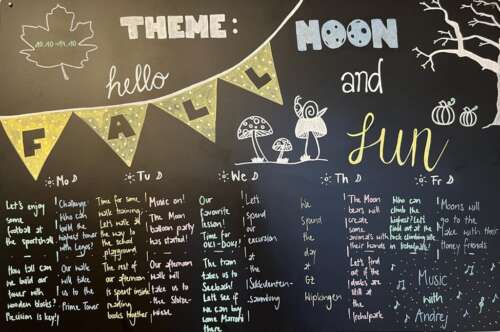 10.10-14.10
THEME: MOON
hello
and
FALL
Sun
Mo
Let's enjoy
some
football at
the sportshall
How tall can
we build our
tower with
wooden blocks?
Precision is key!
Challenge:
Who can
build the
highest tower
Legos?
Our walk
will take
us to the
Prime Tower
Tu
Time for some
walk training.
Let's walk all
the way to
the school
playground.
The rest of
our afternoon
is spent inside
reading
books together
Music on!
The Moon
balloon party
has started!
Our afternoon
walk will
take us
to the
We
Our
favourite
lesson!
Time for
OKI-DOKI!
The tram
takes us to
Seebach!
Let's see if
we can buy
some Marroni
there
Let's
spend
our
excursion
at the
Sukkulenten-
sammlung
Th
We
spend
the
day
at
GZ
Wipkingen
The Moon
bears will
create
some
animals with
their hands
Let's find
out if the
ducks are
still at
the
Irchelpark
Fr
Who can
climb the
highest? Let's
at the climbing site
in Irchelpark!
Moons will
go to the
lake with their
honey friends
Music
with
Andrej